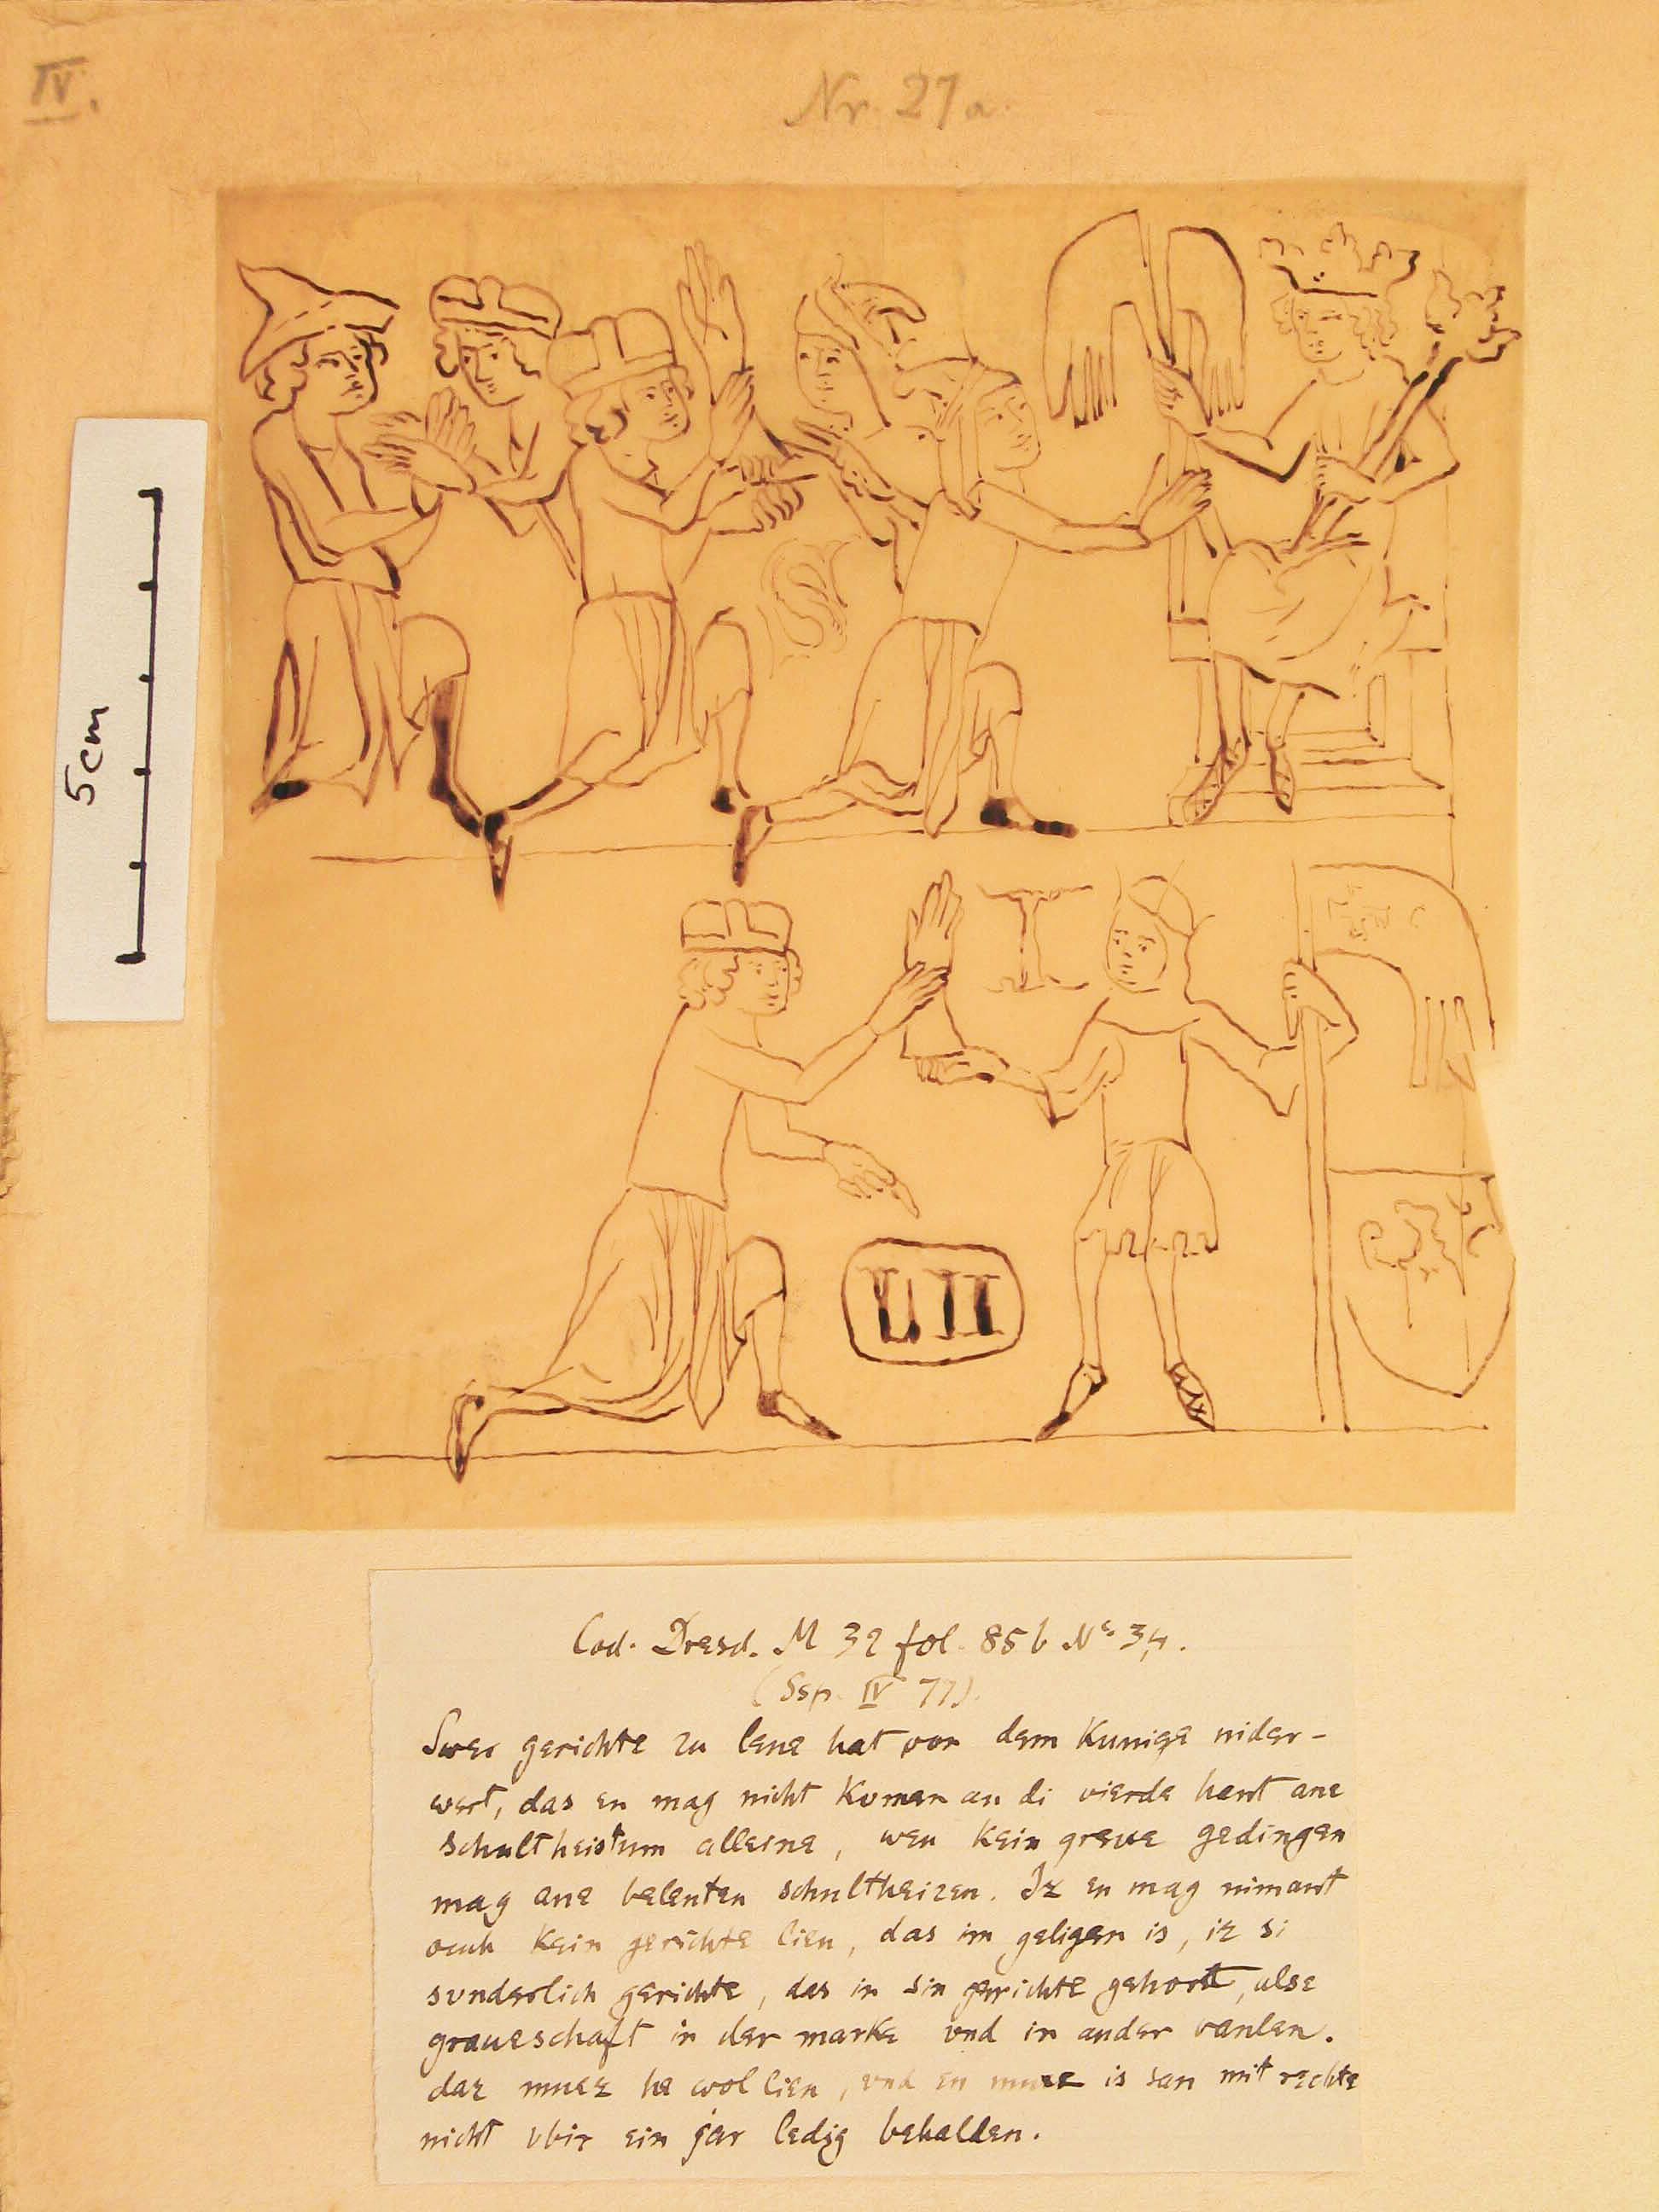 IV.
Nr. 27a.
5cm
S
I
LII
Cod. Dresd. M 32 fol. 85b No 3,4.
(Ssp. IV 77).
Swer gerichte zu lene hat von dem Kunige nider-
wert, das en mag nicht Komen an di vierde hant ane
schultheistum alleine, wen Kein greve gedingen
mag ane belenten schultheizen. Iz en mag nimant
ouch Kein gerichte lien, das im geligen is, iz si
sunderlich gerichte, das in sin gerichte gehort, alse
graueschaft in der marke vnd in ander vanlen.
daz muez he wol lien, vnd en muez is san mit rechte
nicht vbir ein jar ledig behalden.